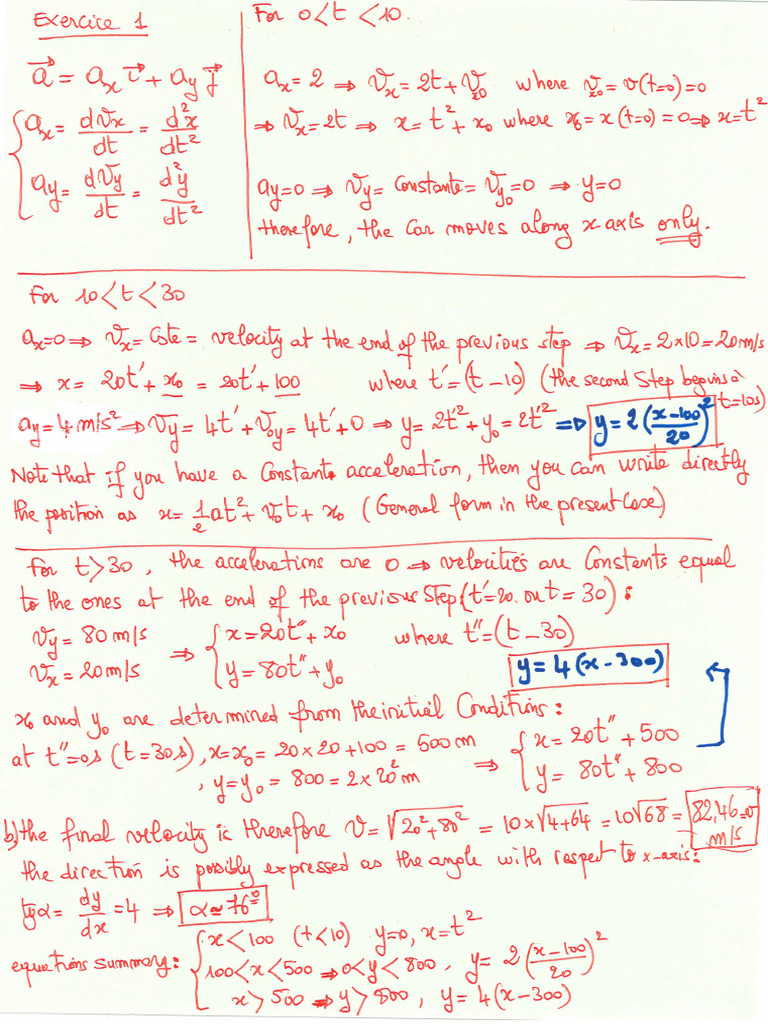 Exercice 1
a⃗ = aₓ i⃗ + a_y j⃗
aₓ = dVₓ/dt = d²x/dt²
a_y = dV_y/dt = d²y/dt²
For 0<t<10.
aₓ = 2 ⇒ Vₓ = 2t + Vₓ₀ where vₓ₀ = v(t=0) = 0
⇒ Vₓ = 2t ⇒ x = t² + x₀ where x₀ = x(t=0) = 0 ⇒ x = t²
a_y = 0 ⇒ V_y = Constante = V_y₀ = 0 ⇒ y = 0
therefore, the Car moves along x axis only.
For 10<t<30
aₓ=0 ⇒ Vₓ = Cste = velocity at the end of the previous step ⇒ Vₓ = 2×10 = 20 m/s
⇒ x = 20t' + x₀ = 20t' + 100 where t' = (t−10) (the second Step begins at t=10s)
a_y = 4 m/s² ⇒ V_y = 4t' + V₀y = 4t' + 0 ⇒ y = 2t'² + y₀ = 2t'² ⇒ y = 2((x−100)/20)²
Note that if you have a Constant acceleration, then you can write directly
the position as x = ½at² + v₀t + x₀ (General form in the present Case)
For t>30, the accelerations are 0 ⇒ velocities are Constants equal
to the ones at the end of the previous Step (t'=20. or t = 30) :
V_y = 80 m/s
Vₓ = 20 m/s
⇒ { x = 20t'' + x₀ where t'' = (t−30)
y = 80t'' + y₀
y = 4(x−300)
x₀ and y₀ are determined from the initial Conditions :
at t''=0s (t=30s), x=x₀ = 20×20+100 = 500 m
, y=y₀ = 800 = 2×20² m
⇒ { x = 20t'' + 500
y = 80t'' + 800
b) the final velocity is therefore V = √(20²+80²) = 10×√(4+64) = 10√68 = 82,46 = v m/s
the direction is possibly expressed as the angle with respect to x-axis:
tgα = dy/dx = 4 ⇒ α ≃ 76°
equations summary: { x<100 (t<10) y=0, x=t²
100<x<500 ⇒ 0<y<800, y = 2((x−100)/20)²
x>500 ⇒ y>800, y = 4(x−300)